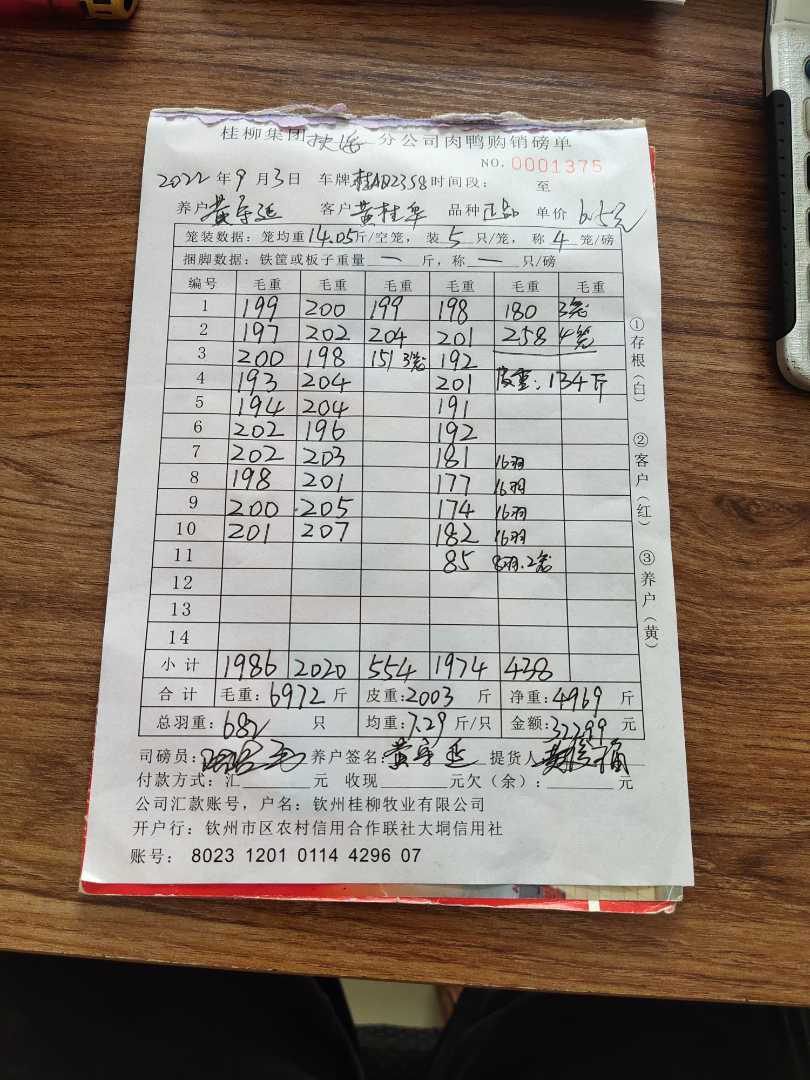 桂柳集团 分公司肉鸭购销磅单
NO. 0001375
2022年9月3日 车牌桂AD2358时间段: 至
养户黄守延 客户黄桂华 品种正品 单价6.5元
笼装数据:笼均重14.05斤/空笼,装5只/笼,称4笼/磅
捆脚数据:铁筐或板子重量一斤,称一只/磅
编号 毛重 毛重 毛重 毛重 毛重 毛重
1 199 200 199 198 180 3笼
2 197 202 204 201 258 4笼
3 200 198 151 3笼 192
4 193 204 201 皮重:134斤
5 194 204 191
6 202 196 192
7 202 203 181 16羽
8 198 201 177 16羽
9 200 205 174 16羽
10 201 207 182 16羽
11 85 8羽.2笼
12
13
14
小计 1986 2020 554 1974 438
合计 毛重:6972斤 皮重:2003斤 净重:4969斤
总羽重:682只 均重:7.29斤/只 金额:32299元
司磅员: 养户签名:黄守延 提货人
付款方式:汇 元 收现 元欠(余): 元
公司汇款账号,户名:钦州桂柳牧业有限公司
开户行:钦州市区农村信用合作联社大垌信用社
账号: 8023 1201 0114 4296 07
①存根(白)
②客户(红)
③养户(黄)